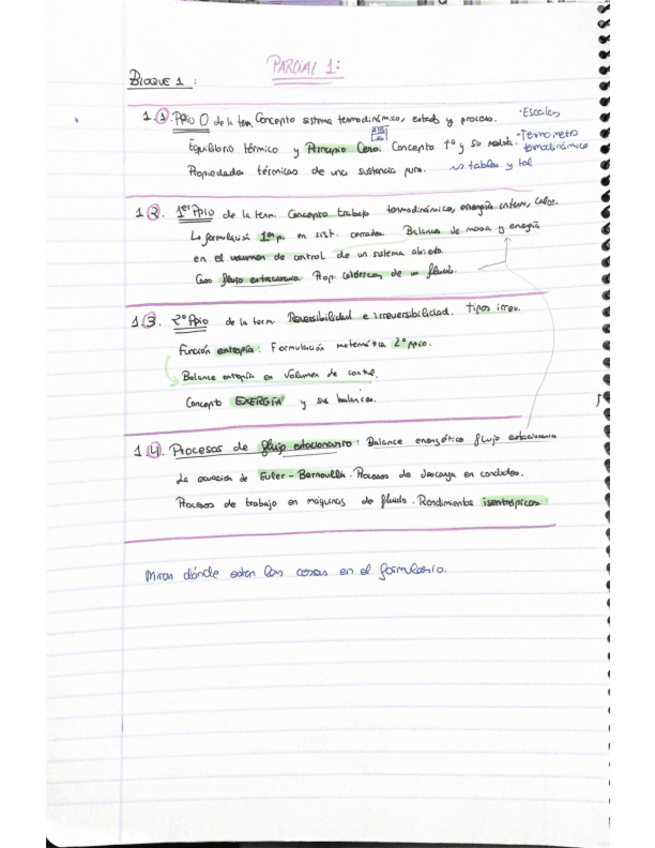 PARCIAL 1:
BLOQUE 1 :
1.1. Ppio 0 de la term. Concepto sistema termodinámico, estado y proceso.
· Escalas
Equilibrio térmico y Principio Cero. Concepto Tª y su medida.
· Termómetro termodinámico
Propiedades térmicas de una sustancia pura.
→ tablas y tal
1.2. 1er Ppio de la term. Concepto trabajo termodinámico, energía interna, calor.
La formulación 1er p. en sist. cerrados. Balance de masa y energía
en el volumen de control de un sistema abierto.
Caso flujo estacionario. Prop. calóricas de un fluido.
1.3. 2º Ppio de la term. Reversibilidad e irreversibilidad. Tipos irrev.
Función entropía: Formulación matemática 2º ppio.
Balance entropía en volumen de control.
Concepto EXERGÍA y sus balances.
1.4. Procesos de flujo estacionario: Balance energético flujo estacionario
La ecuación de Euler - Bernoulli. Procesos de descarga en conductos.
Procesos de trabajo en máquinas de fluido. Rendimientos isentrópicos
Mirar dónde estan las cosas en el formulario.